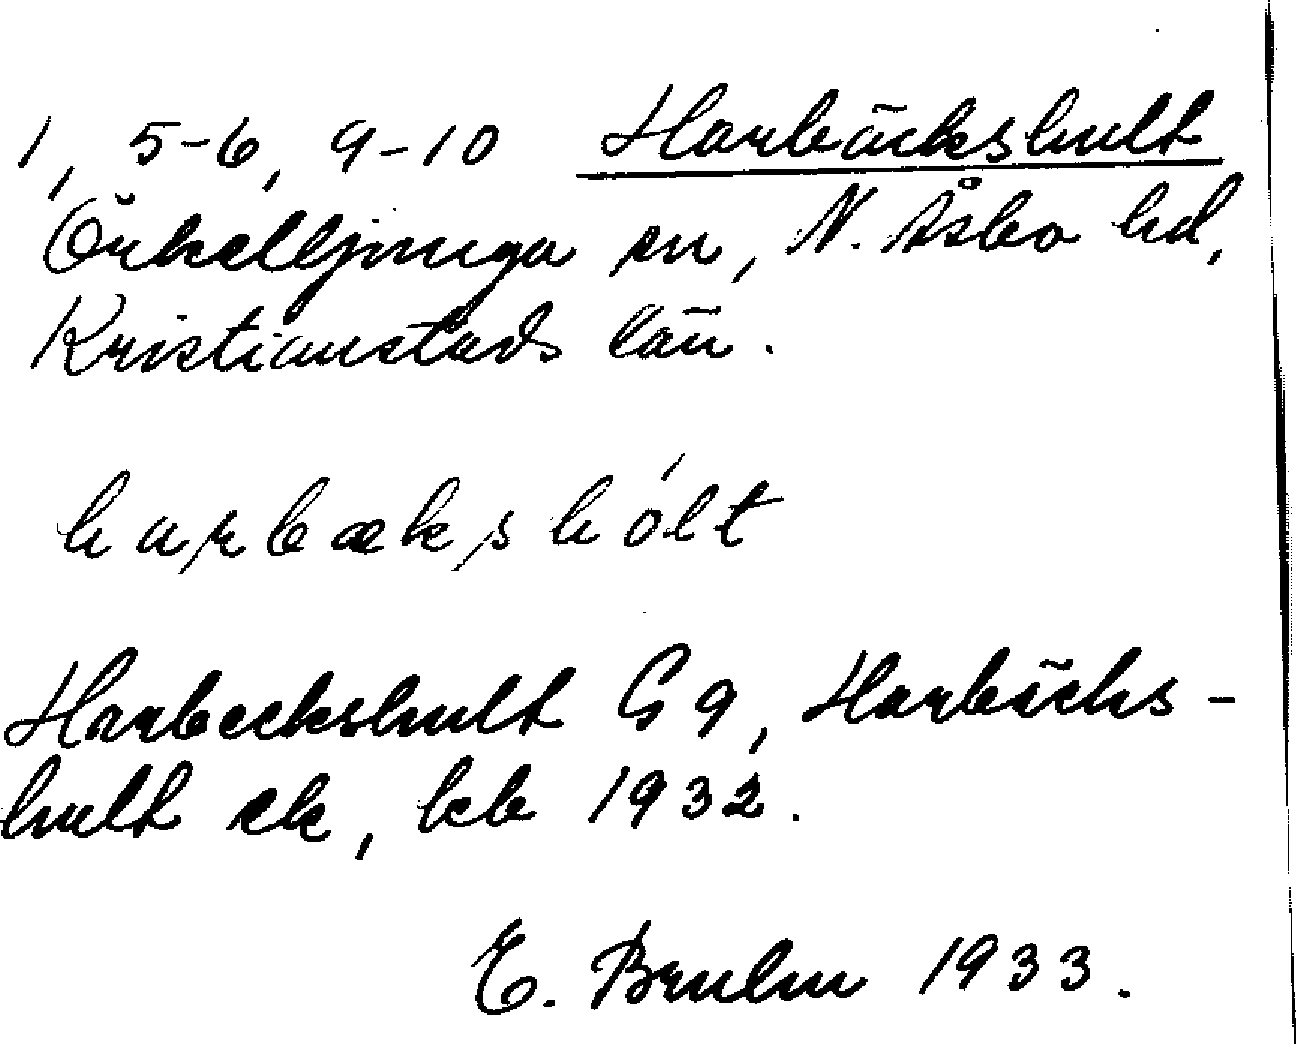 1, 5-6, 9-10 Harbäckshult
Örkelljunga sn, N. Åsbo hd,
Kristianstads län.
harbækshólt
Harbeckshult G 9, Harbäcks-
hult ek, kb 1932.
E. Bruhn 1933.